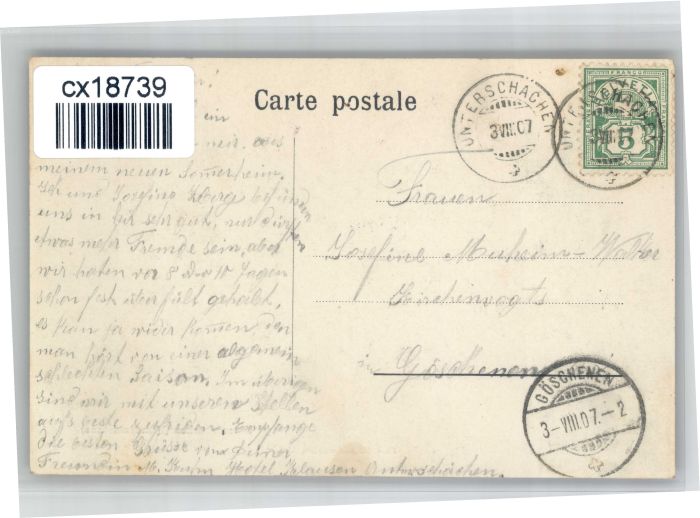 cx18739
Carte postale
UNTERSCHÄCHEN
3.VIII.07
UNTERSCHÄCHEN
HELVETIA
FRANCO
5
ein
mir aus
meinem neuen Somerheim.
Ich und Josefine
uns in hir sehr gut, nur dürften
etwas mehr Fremde sein, aber
wir haben vor 8 bis 10 Tagen
schon fest überfült gehabt,
es kan ja wider komen, den
man hört von einer algemein
schlechten Saison. Im übrigen
sind wir mit unseren Stellen
aufs beste zufriden. Empfange
die besten Grüsse von deiner
Freundin M. Hotel Klausen Unterschächen.
Frauen
Josefine Muheim-Walker
Kirchenvogts
in Göschenen
GÖSCHENEN
3-VIII.07.-2